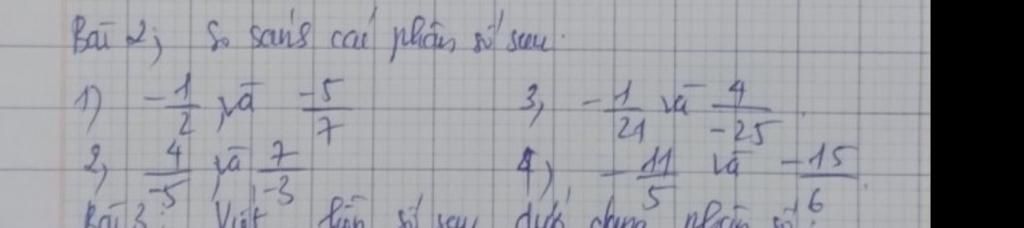 Bài 2; So sánh các phân số sau:
1) -1/2 và -5/7 3, -1/21 và 4/-25
2, 4/-5 và 7/-3 4) -11/5 và -15/6
Bài 3: Viết số sau dưới dạng phân số: